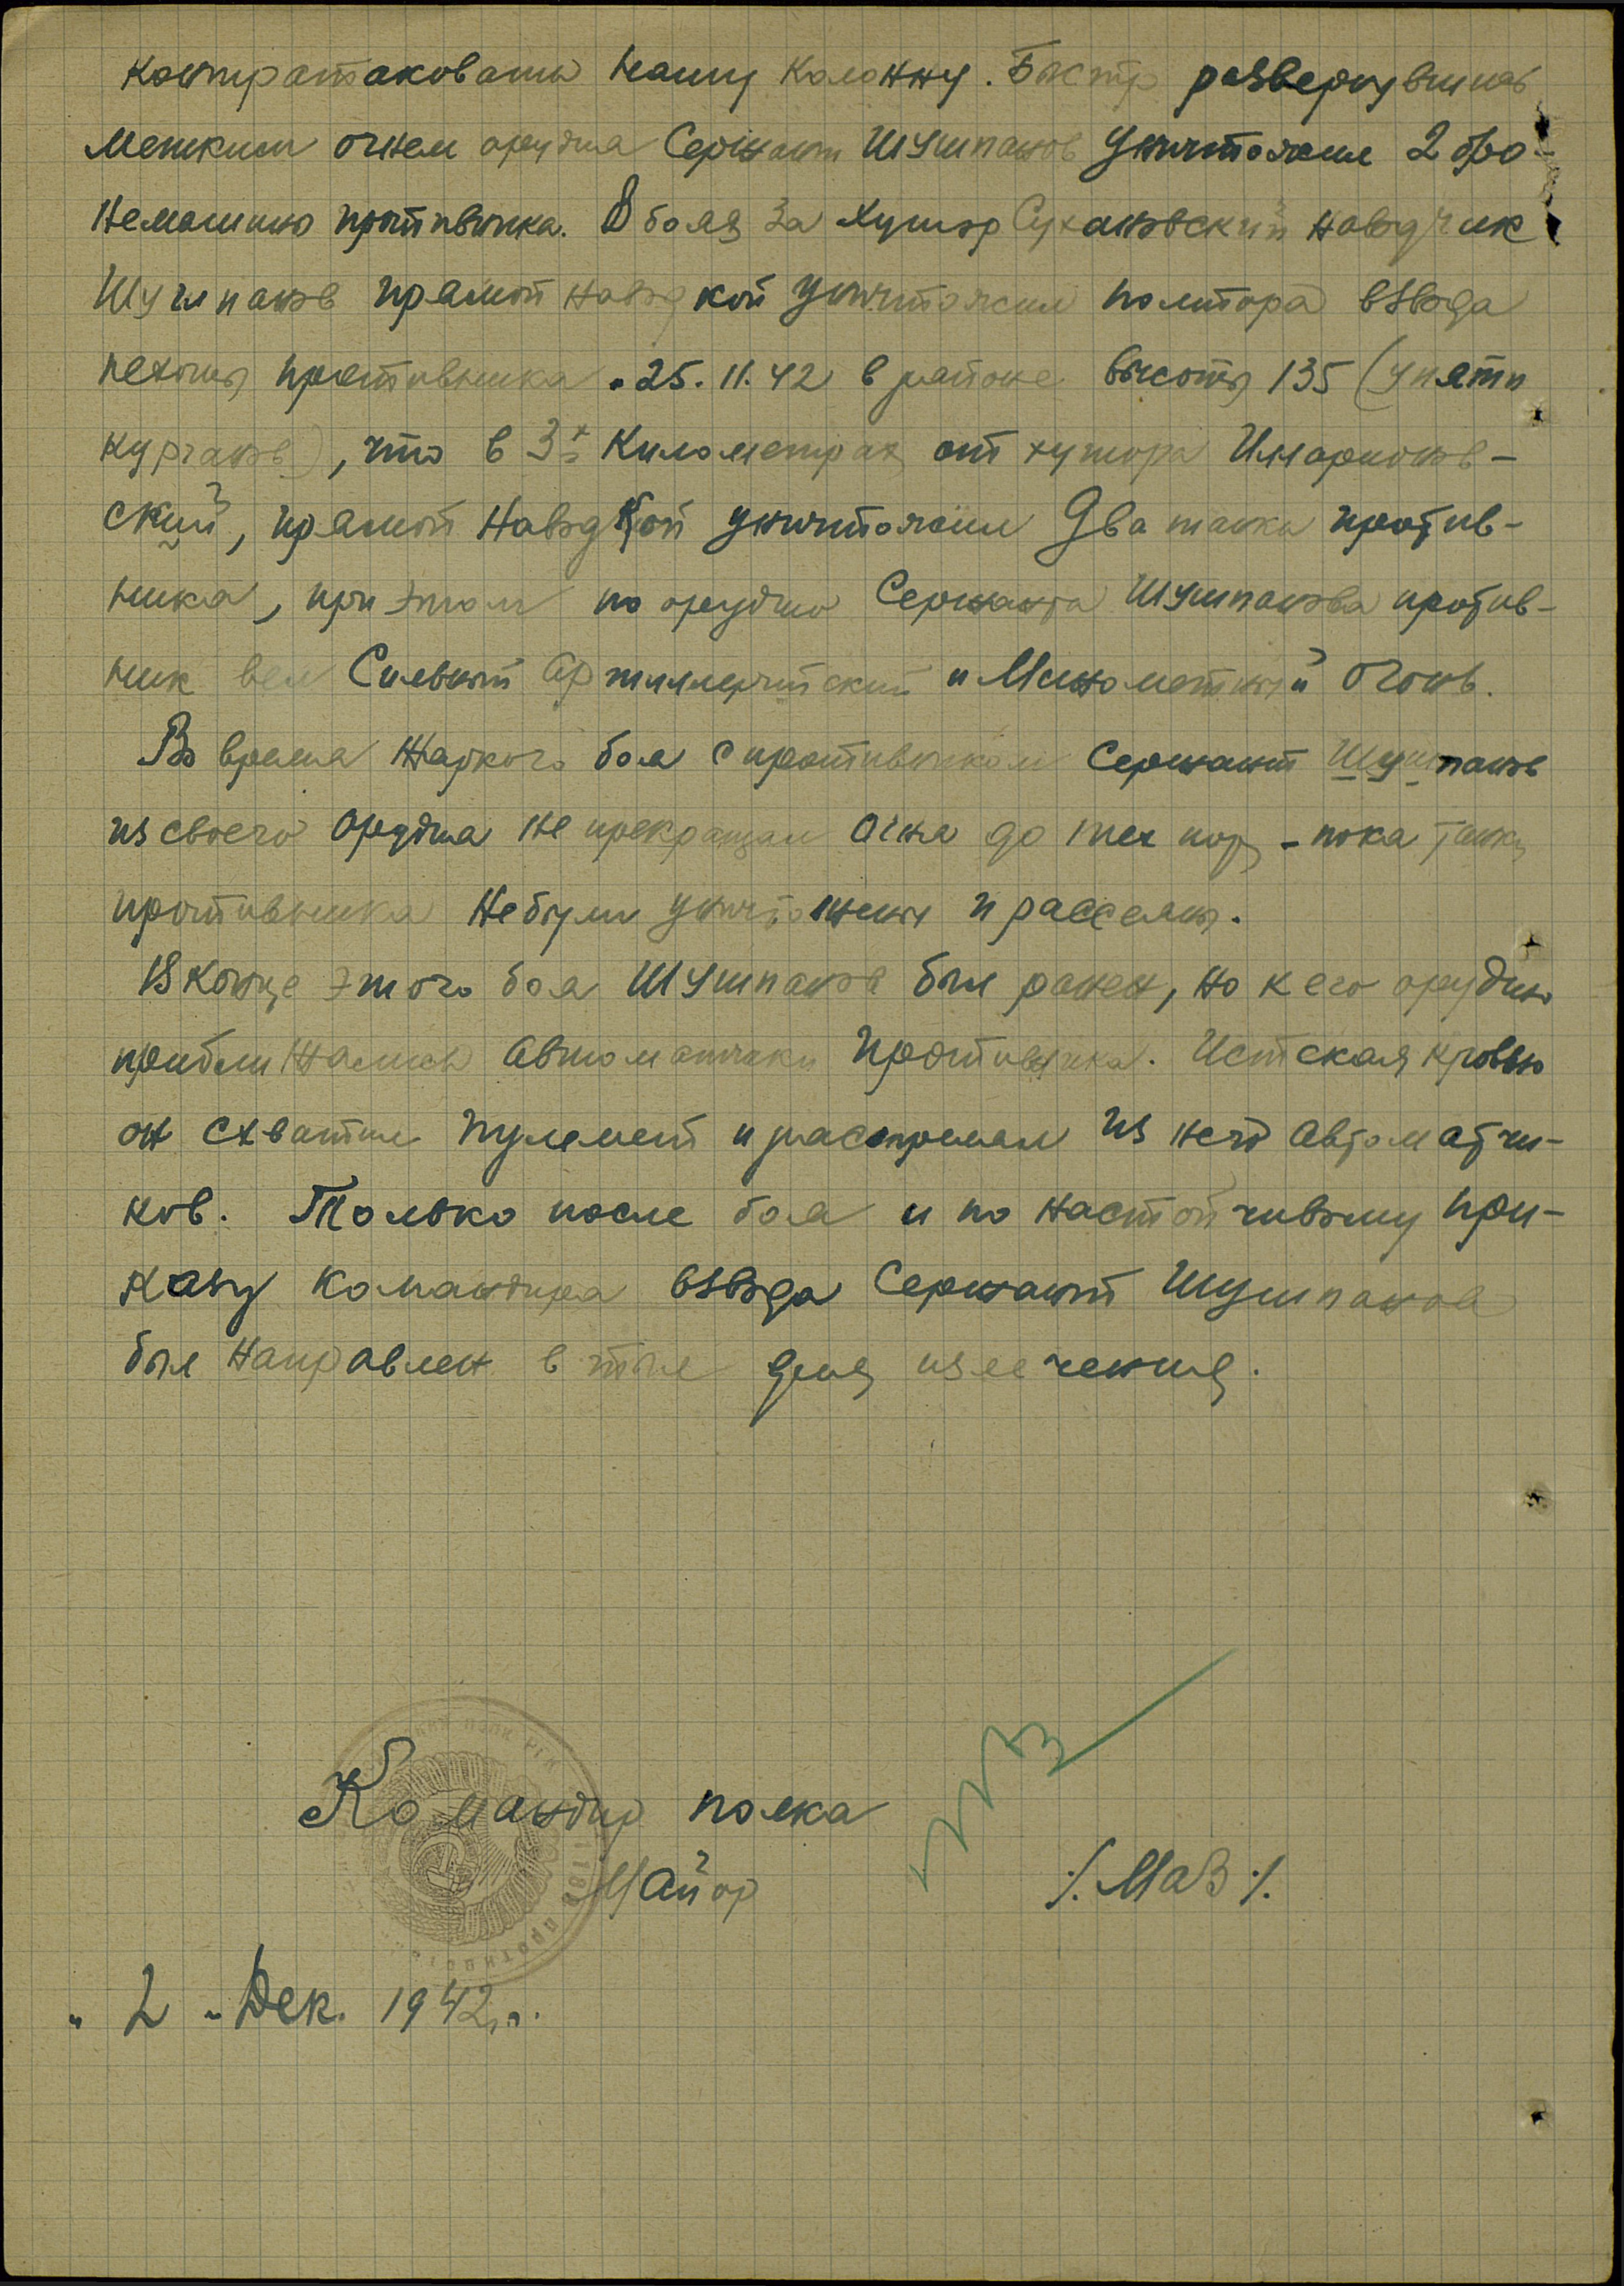 контратаковать нашу колонну. Быстр развернувшись
метким огнем орудия Сержант Шушпанов уничтожил 2 бро-
немашины противника. В боях за хутор Сухановский наводчик
Шушпанов прямой наводкой уничтожил полтора взвода
пехоты противника. 25.11.42 в районе высоты 135 (у пяти
курганов), что в 3х километрах от хутора Илларионов-
ский, прямой наводкой уничтожил два танка против-
ника, при этом по орудию Сержанта Шушпанова против-
ник вел Сильный Артиллерийский и Минометный огонь.
Во время Жаркого боя с противником Сержант Шушпанов
из своего орудия не прекращал огня до тех пор - пока танки
противника не были уничтожены и рассеяны.
В конце этого боя Шушпанов был ранен, но к его орудию
приближались автоматчики противника. Истекая кровью
он схватил пулемет и расстрелял из него автоматчи-
ков. Только после боя и по настойчивому при-
казу командира взвода Сержант Шушпанов
был направлен в тыл для излечения.
Командир полка
Майор /. Маз ./.
"2" Дек. 1942 г.